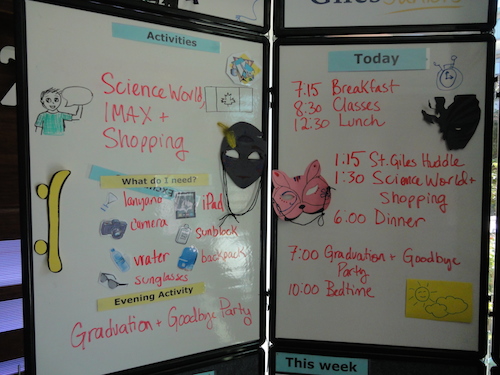 Giles
Activities
Science World,
IMAX +
Shopping
What do I need?
lanyard
iPad
camera
sunblock
water
backpack
sunglasses
Evening Activity
Graduation + Goodbye Party
Today
7:15 Breakfast
8:30 Classes
12:30 Lunch
1:15 St. Giles Huddle
1:30 Science World +
Shopping
6:00 Dinner
7:00 Graduation + Goodbye
Party
10:00 Bedtime
This week